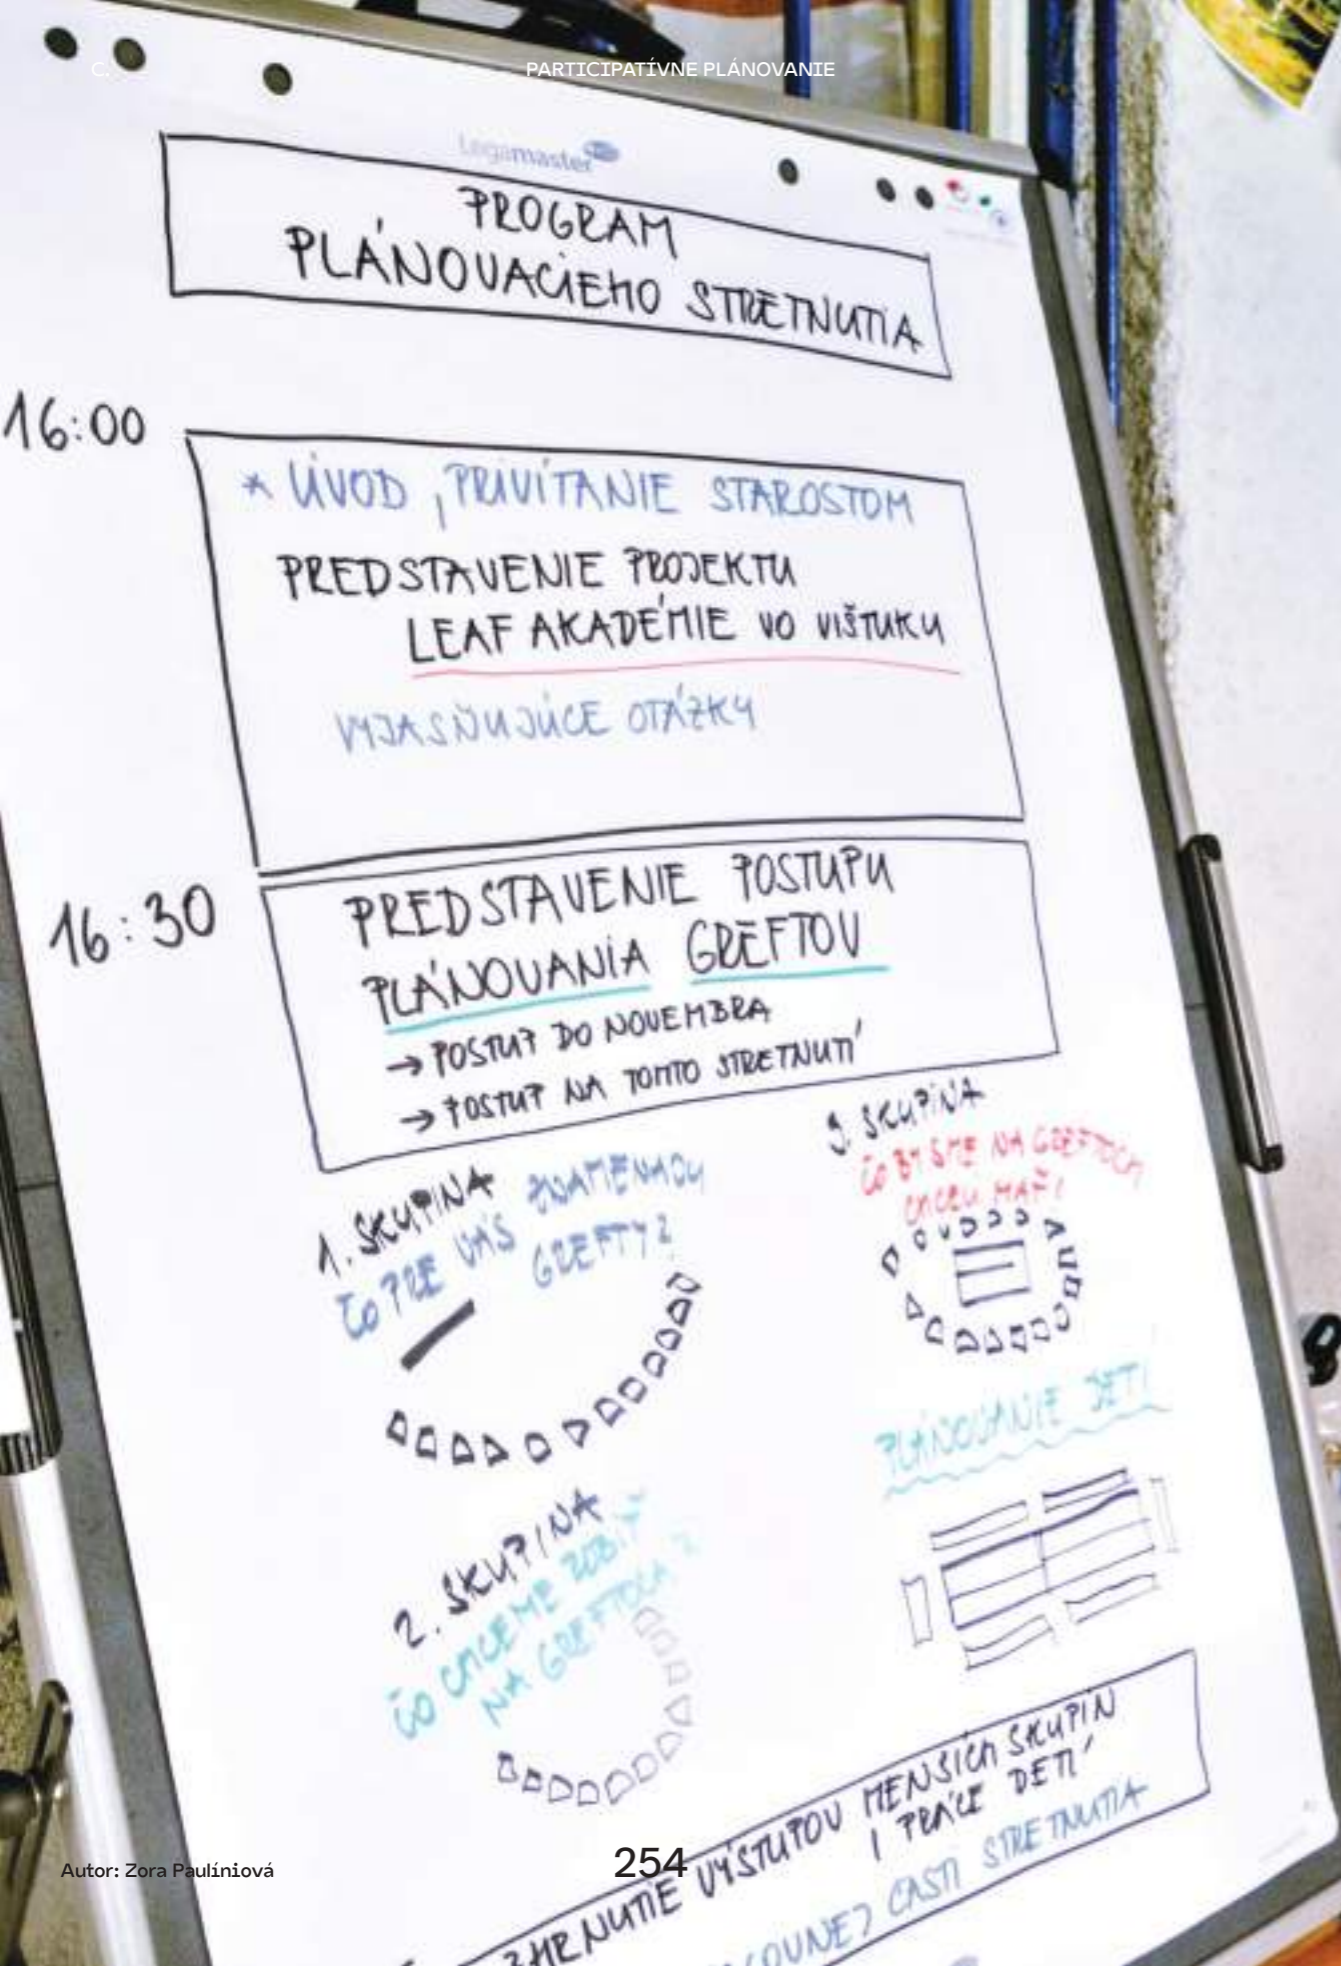 C.
PARTICIPATÍVNE PLÁNOVANIE
Legamaster
PROGRAM
PLÁNOVACIEHO STRETNUTIA
16:00
* ÚVOD, PRIVÍTANIE STAROSTOM
PREDSTAVENIE PROJEKTU
LEAF AKADÉMIE VO VIŠTUKU
VYJASŇUJÚCE OTÁZKY
16:30
PREDSTAVENIE POSTUPU
PLÁNOVANIA GREFTOV
→ POSTUP DO NOVEMBRA
→ POSTUP NA TOMTO STRETNUTÍ
1. SKUPINA
ČO PRE VÁS ZNAMENAJÚ
GREFTY?
3. SKUPINA
ČO BY SME NA GREFTOCH
CHCELI MAŤ?
PLÁNOVANIE DETÍ
2. SKUPINA
ČO CHCEME ROBIŤ
NA GREFTOCH?
ZHRNUTIE VÝSTUPOV MENŠÍCH SKUPÍN
I PRÁCE DETÍ
ČASTI STRETNUTIA
Autor: Zora Paulíniová
254